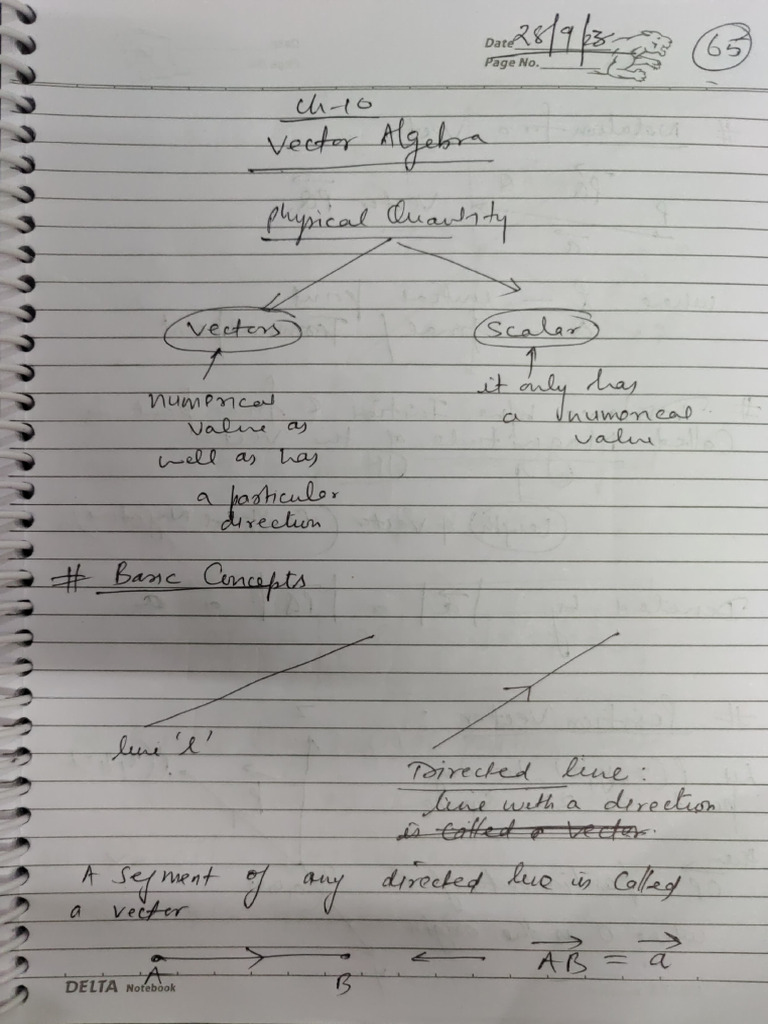 Date 28/9/23
Page No.
65
Ch-10
Vector Algebra
Physical Quantity
Vectors
Scalar
numerical
value as
well as has
a particular
direction
it only has
a numerical
value
# Basic Concepts
line 'l'
Directed line:
line with a direction
is called a vector.
A segment of any directed line is called
a vector
A B
$\overrightarrow{AB} = \overrightarrow{a}$
DELTA Notebook